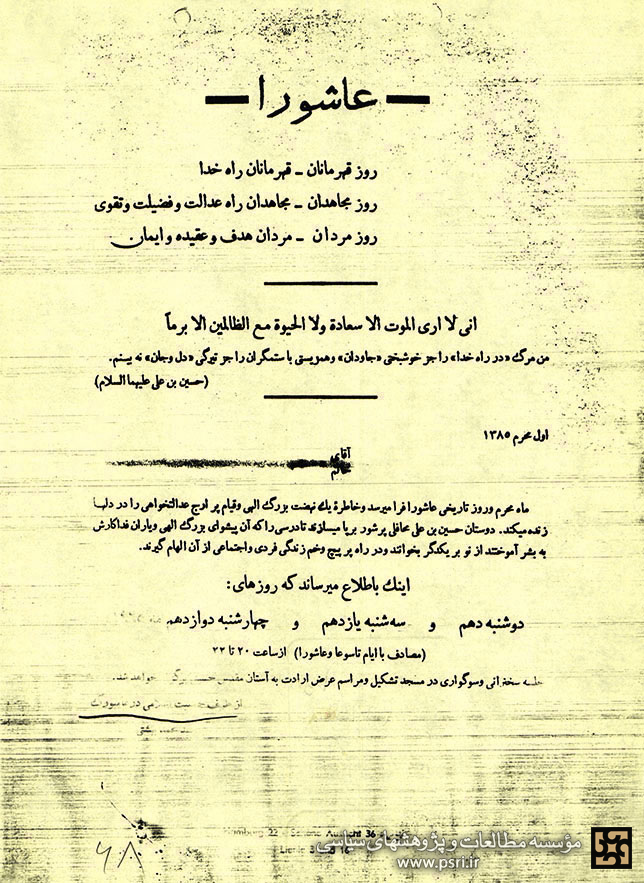 — عاشورا —
روز قهرمانان – قهرمانان راه خدا
روز مجاهدان – مجاهدان راه عدالت و فضیلت و تقوی
روز مردان – مردان هدف و عقیده و ایمان
انی لا اری الموت الا سعادة ولا الحیوة مع الظالمین الا برماً
من مرگ «در راه خدا» را جز خوشبختی «جاودان» وهمزیستی با ستمگران را جز تیرگی «دل وجان» نه بینم.
(حسین بن علی علیهما السلام)
اول محرم ۱۳۸۵
آقای
خانم
ماه محرم وروز تاریخی عاشورا فرا میرسد وخاطرهٔ یك نهضت بزرگ الهی وقیام پر اوج عدالتخواهی را در دلها
زنده میکند. دوستان حسین بن علی محافلی پرشور برپا میسازند تا درسی را که آن پیشوای بزرگ الهی ویاران فداکارش
به بشر آموختند از نو بر یکدگر بخوانند ودر راه پر پیچ وخم زندگی فردی واجتماعی از آن الهام گیرند.
اینك باطلاع میرساند که روزهای:
دوشنبه دهم و سه‌شنبه یازدهم و چهارشنبه دوازدهم
(مصادف با ایام تاسوعا وعاشورا) از ساعت ۲۰ تا ۲۲
جلسه سخنرانی وسوگواری در مسجد تشکیل ومراسم عرض ارادت به آستان مقدس خواهد شد.
از طرف اسلامی در هامبورگ
بهشتی
Hamburg 22 36
۶۸
مؤسسه مطالعات و پژوهشهای سیاسی
www.psri.ir